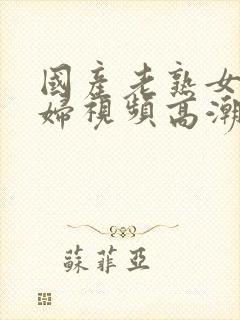 國產老熟女
婦視頻高潮
蘇菲亞